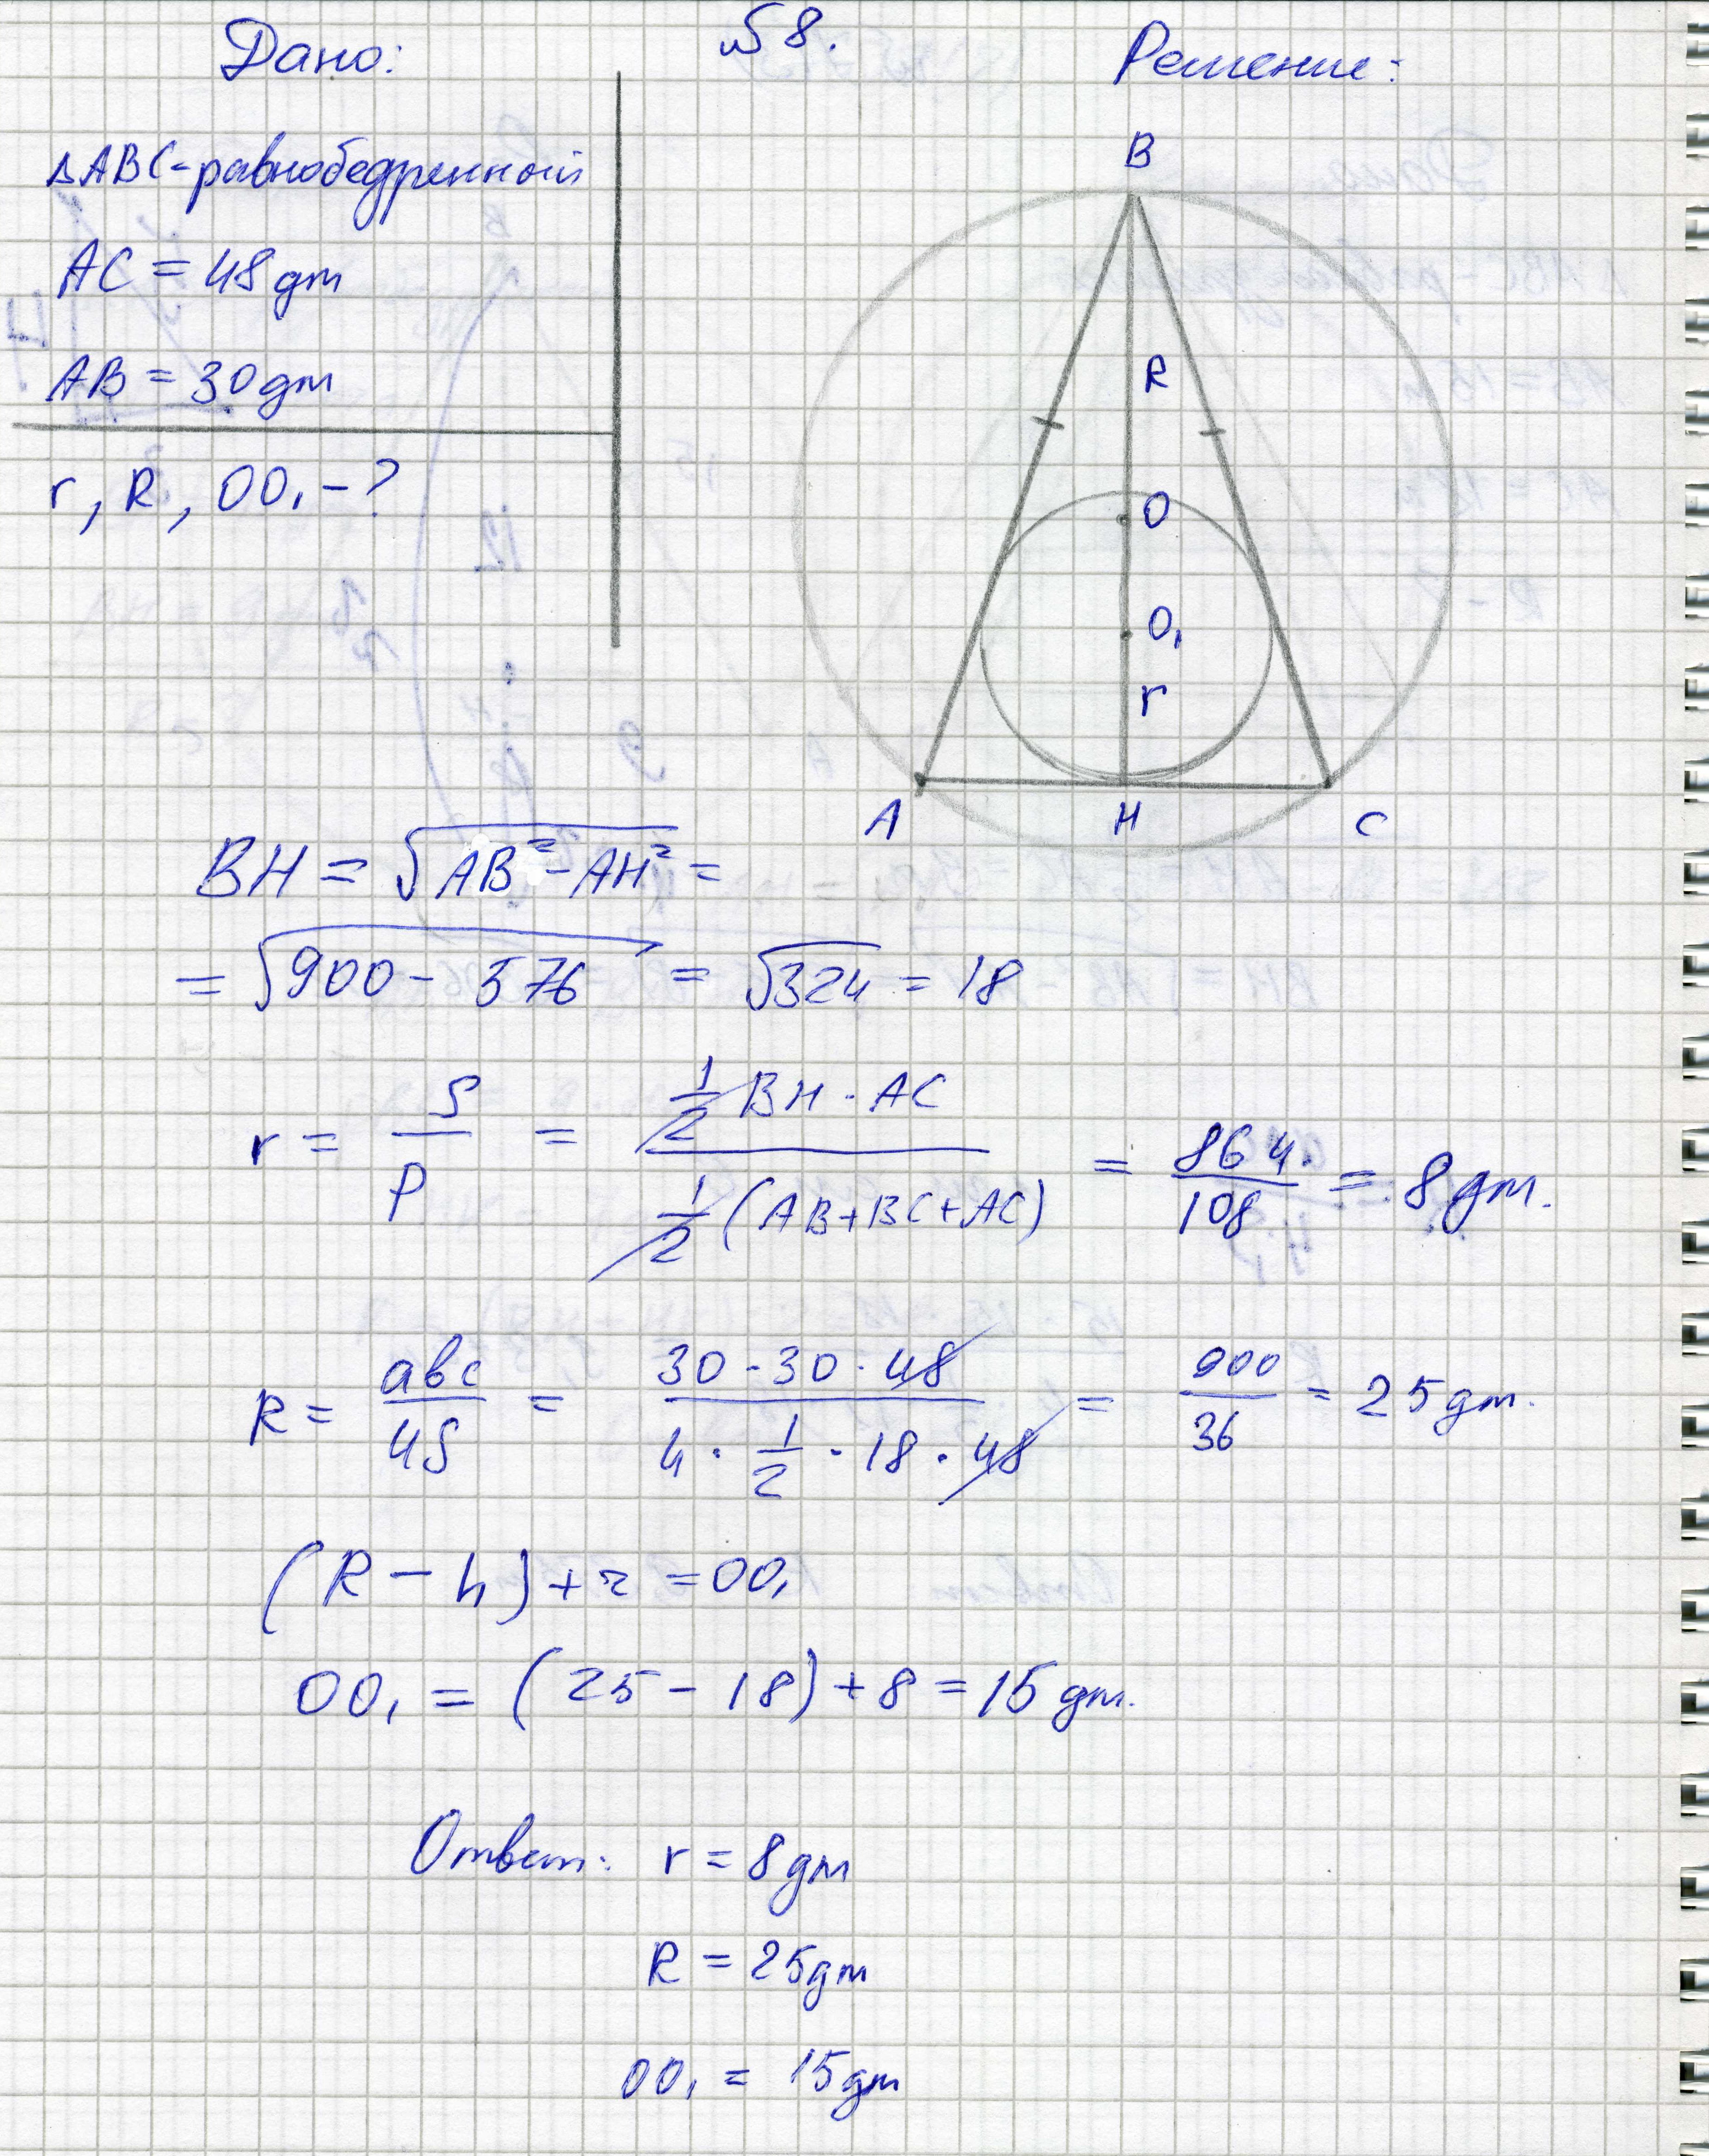 Дано:
№8.
Решение:
△ABC-равнобедренный
AC = 48 дм
AB = 30 дм
r, R, OO₁ - ?
B
R
O
O₁
r
A
H
C
BH = √(AB² - AH²) =
= √(900 - 576) = √324 = 18
r = S/p = (1/2 BH · AC)/(1/2 (AB+BC+AC)) = 864/108 = 8 дм.
R = abc/4S = (30 · 30 · 48)/(4 · 1/2 · 18 · 48) = 900/36 = 25 дм.
(R - h) + r = OO₁
OO₁ = (25 - 18) + 8 = 15 дм.
Ответ: r = 8 дм
R = 25 дм
OO₁ = 15 дм